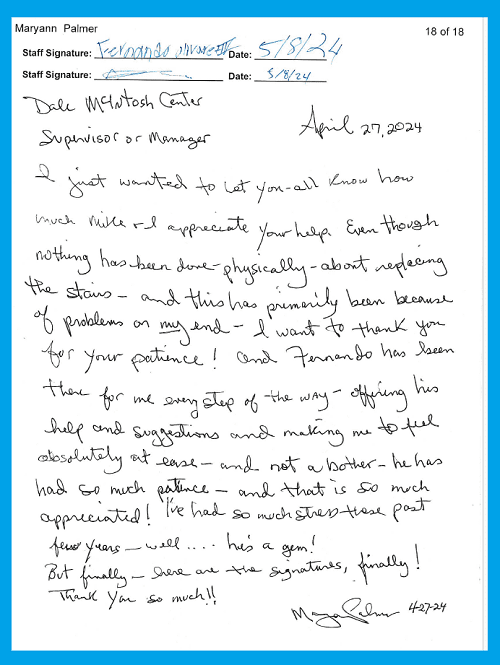 Maryann Palmer
18 of 18
Staff Signature: Fernando Date: 5/8/24
Staff Signature: Date: 5/8/24
Dale McIntosh Center
April 27, 2024
Supervisor or Manager
I just wanted to let you-all know how
much Mike & I appreciate your help. Even though
nothing has been done - physically - about replacing
the stairs - and this has primarily been because
of problems on my end - I want to thank you
for your patience! And Fernando has been
there for me every step of the way - offering his
help and suggestions and making me to feel
absolutely at ease - and not a bother - he has
had so much patience - and that is so much
appreciated! I've had so much stress these past
few years - well .... he's a gem!
But finally - here are the signatures, finally!
Thank you so much!!
Palmer 4-27-24